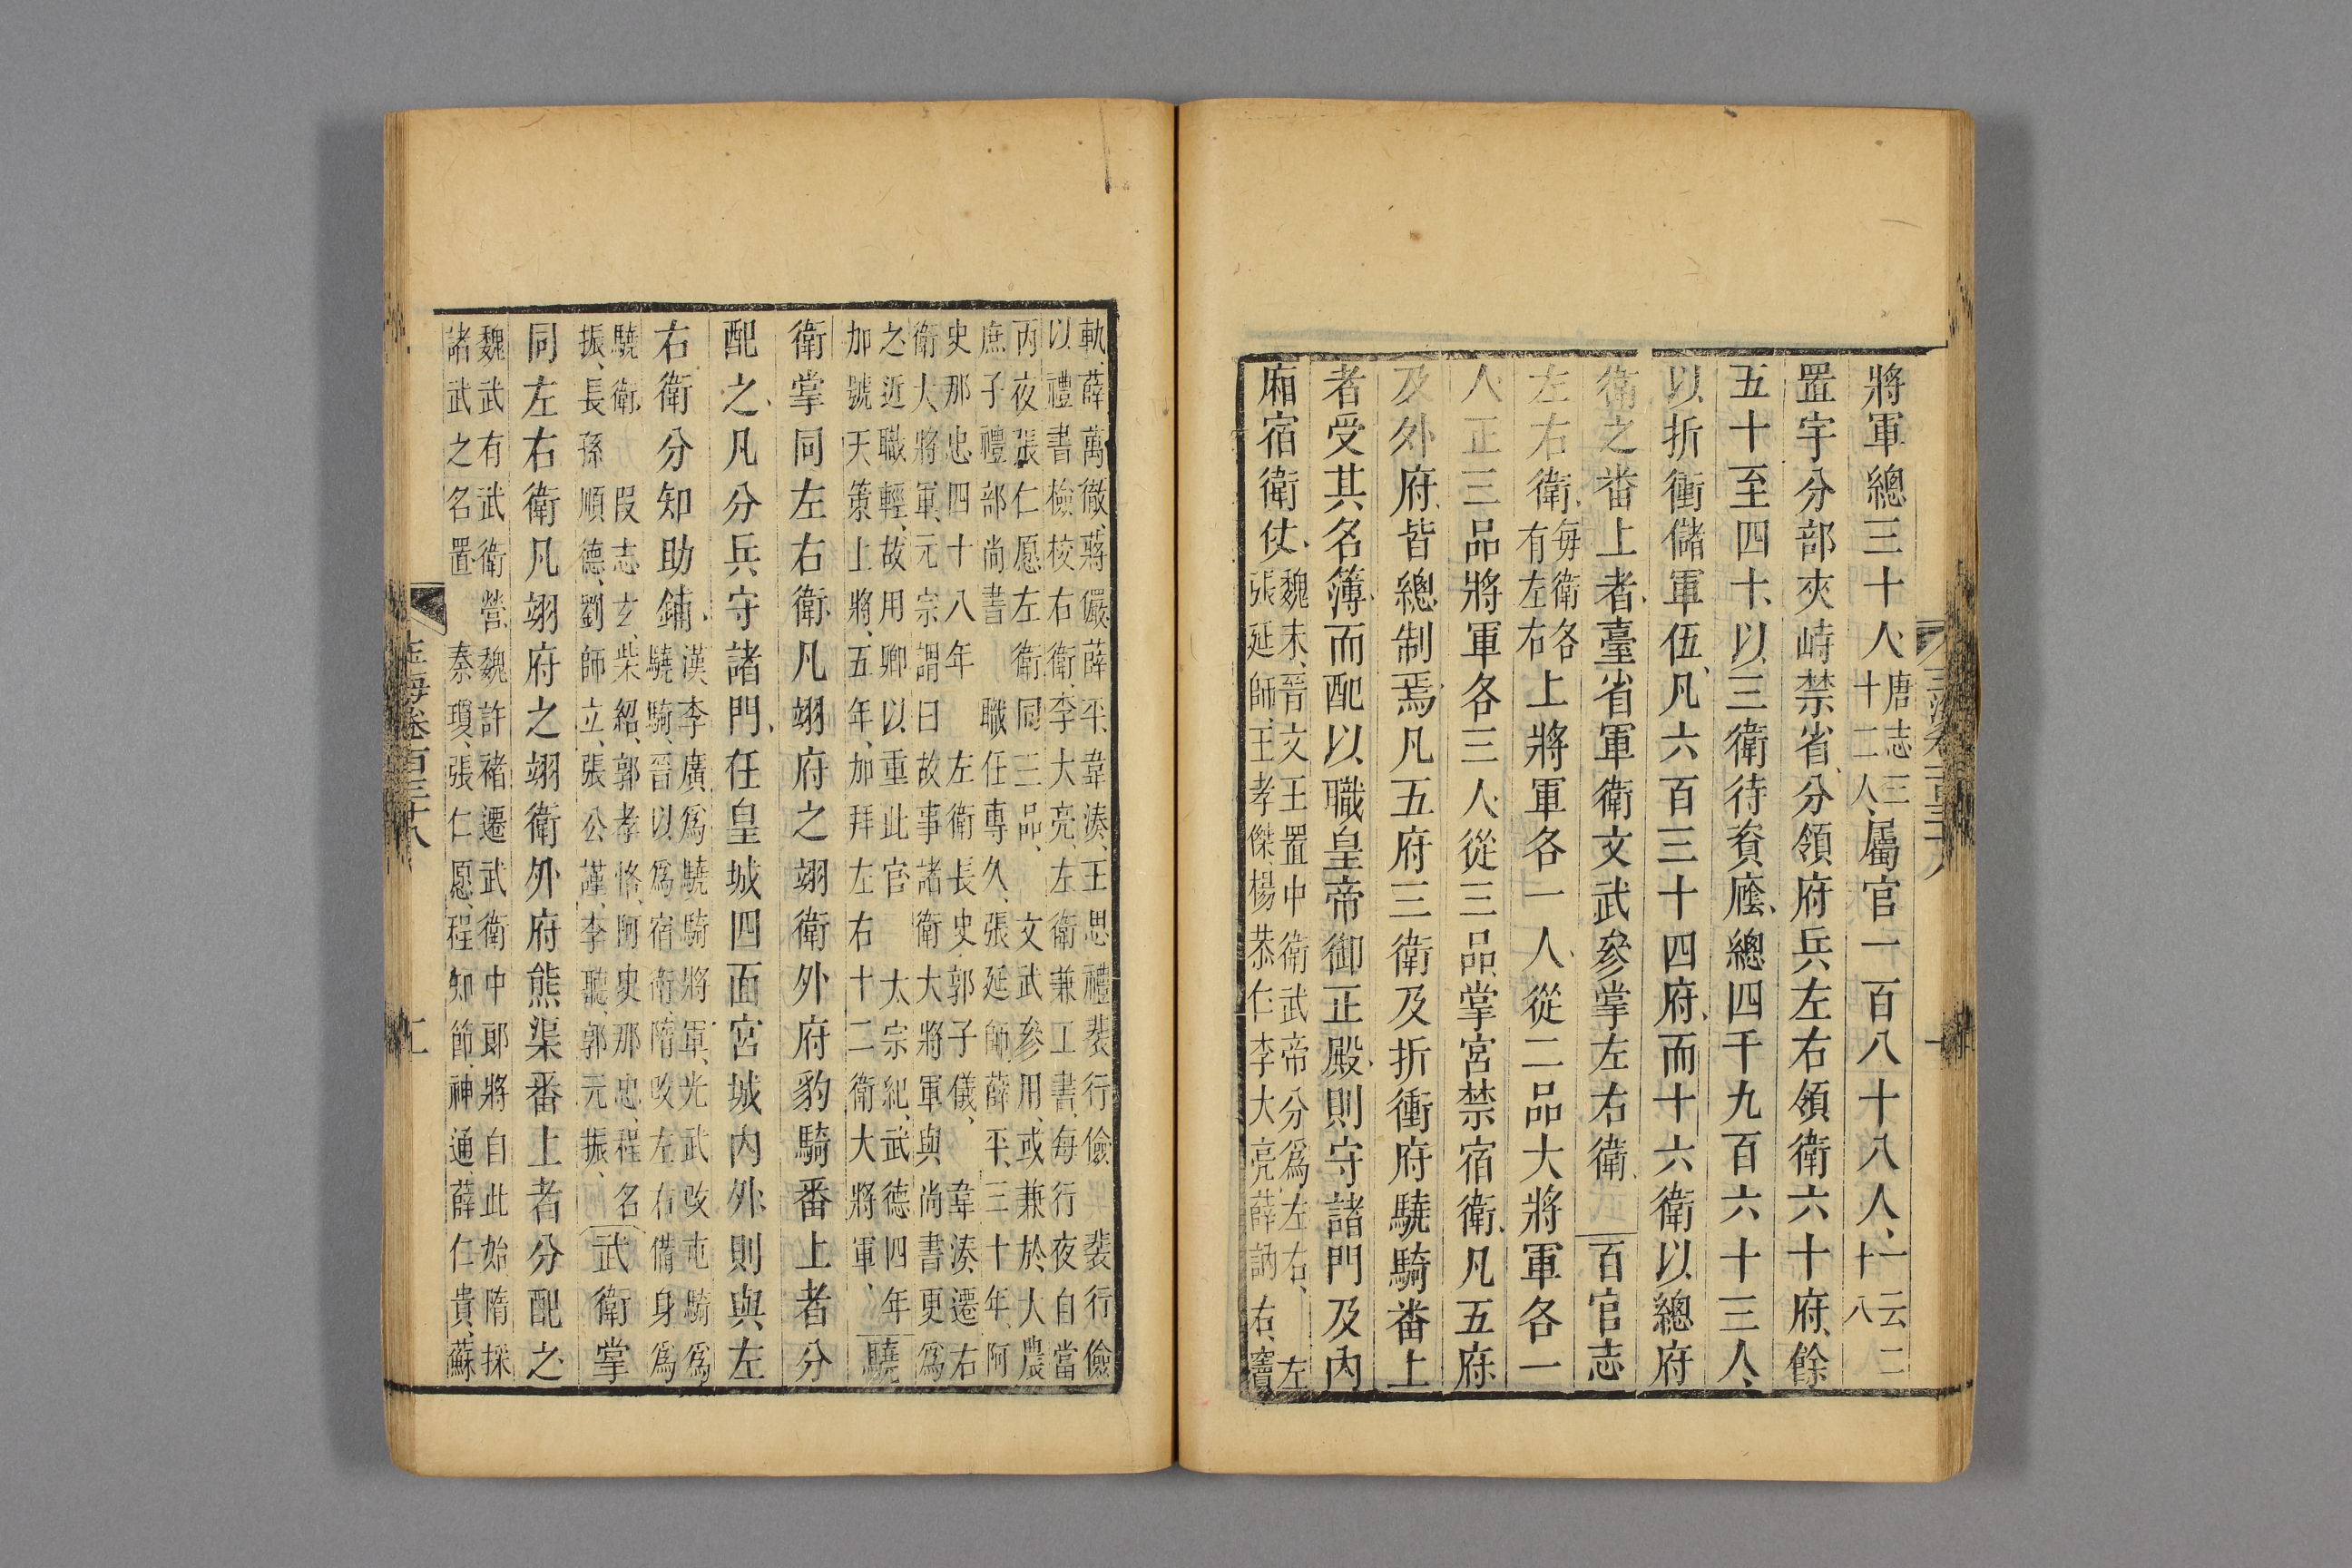 將軍總三十人唐志三十二人屬官一百八十八人一云二十八
置宇分部夾峙禁省分領府兵左右領衛六十府餘
五十至四十以三衛待資廕總四千九百六十三人
以折衝儲軍伍凡六百三十四府而十六衛以總府
衛之番上者臺省軍衛文武參掌左右衛 百官志
左右衛每衛各有左右上將軍各一人從二品大將軍各一
人正三品將軍各三人從三品掌宮禁宿衛凡五府
及外府皆總制焉凡五府三衛及折衝府驍騎番上
者受其名簿而配以職皇帝御正殿則守諸門及內
廂宿衛仗魏末晉文王置中衛武帝分為左右 左張延師王孝傑楊恭仁李大亮薛訥 右竇
軌薛萬徹蔣儼薛平韋湊王思禮裴行儉 裴行儉
以禮書檢校右衛李大亮左衛兼工書每行夜自當
丙夜張仁愿左衛同三品 文武參用或兼於大農
庶子禮部尚書 職任專久張延師薛平三十年阿
史那忠四十八年 左衛長史郭子儀韋湊遷右
衛大將軍元宗謂曰故事諸衛大將軍與尚書更為
之近職輕故用卿以重此官 太宗紀武德四年
加號天策上將五年加拜左右十二衛大將軍
驍
衛掌同左右衛凡翊府之翊衛外府豹騎番上者分
配之凡分兵守諸門任皇城四面宮城內外則與左
右衛分知助鋪漢李廣為驍騎將軍光武改屯騎為驍騎晉以為宿衛隋改左右備身為
驍衛 叚志玄柴紹郭孝恪阿史那忠程名振長孫順德劉師立張公謹李聽郭元振
武衛掌
同左右衛凡翊府之翊衛外府熊渠番上者分配之
魏武有武衛營魏許褚遷武衛中郎將自此始隋採
諸武之名置 秦瓊張仁愿程知節神通薛仁貴蘇
玉海卷百三十八